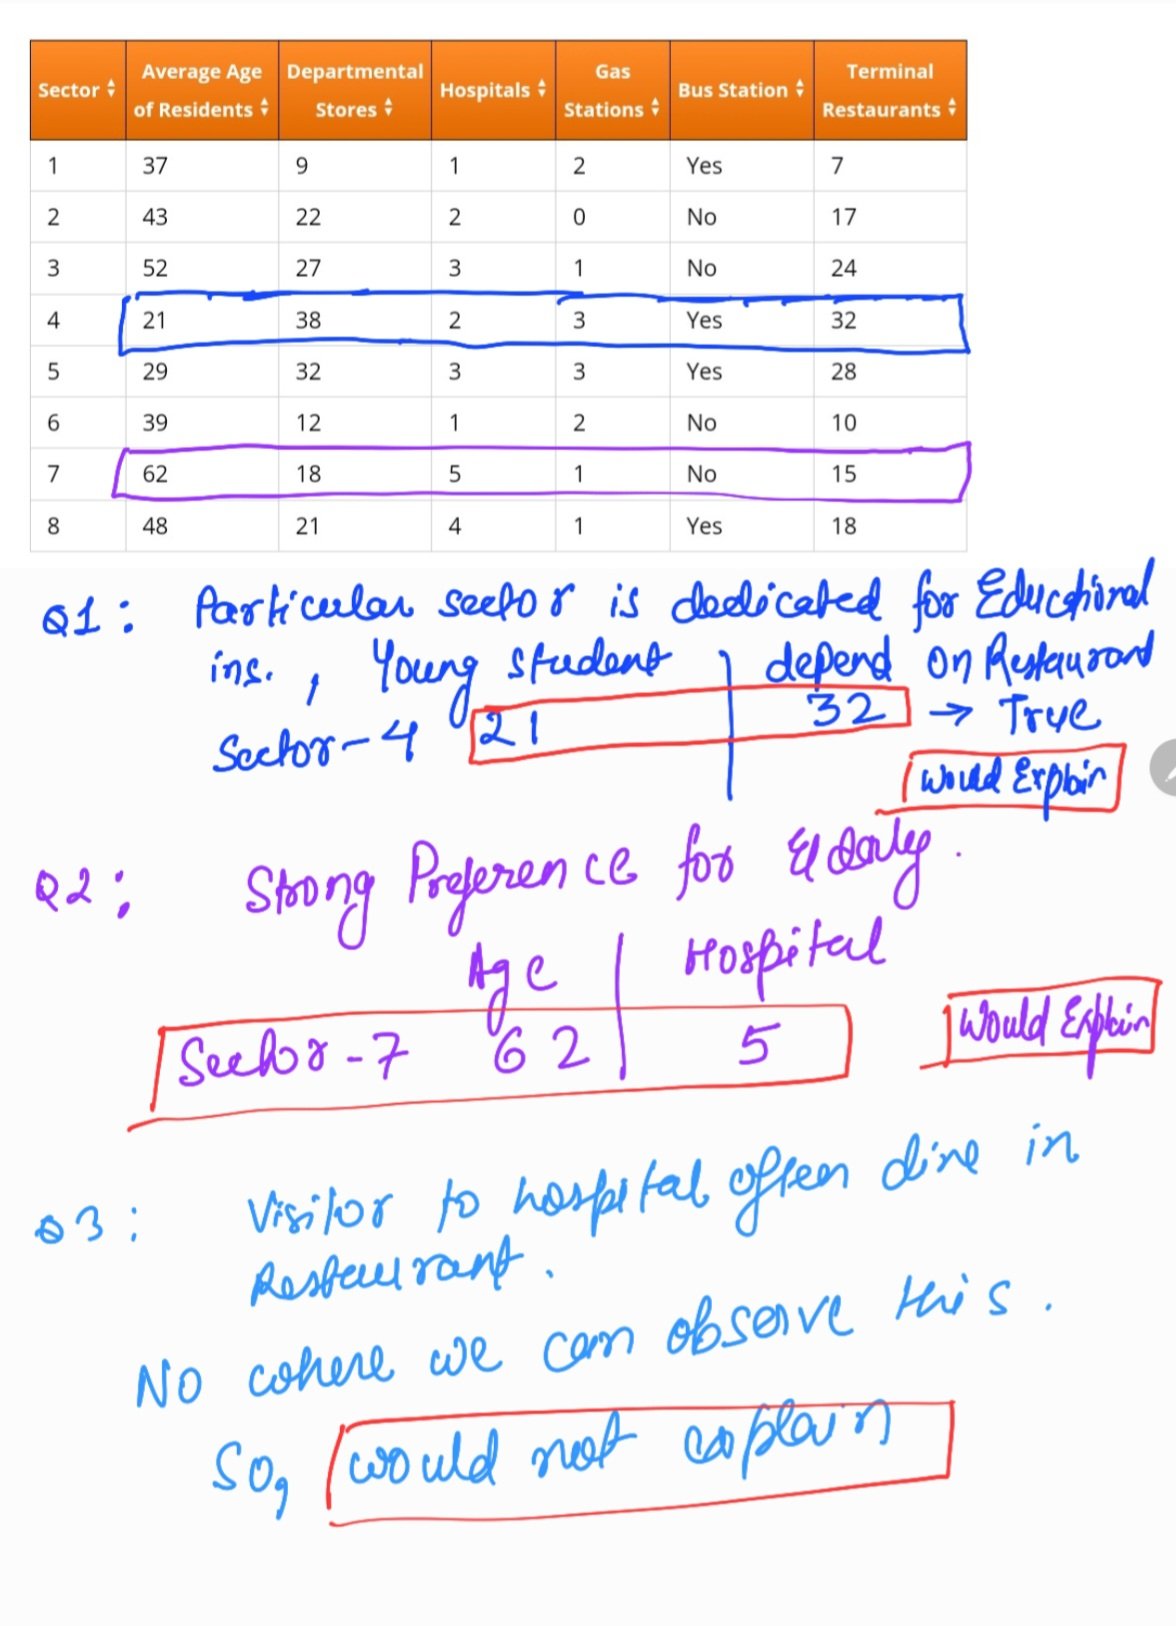 Sector Average Age of Residents Departmental Stores Hospitals Gas Stations Bus Station Terminal Restaurants
1 37 9 1 2 Yes 7
2 43 22 2 0 No 17
3 52 27 3 1 No 24
4 21 38 2 3 Yes 32
5 29 32 3 3 Yes 28
6 39 12 1 2 No 10
7 62 18 5 1 No 15
8 48 21 4 1 Yes 18
Q1: Particular sector is dedicated for Eductional
ins., Young student | depend on Restaurant
Sector-4 21 | 32 → True
Would Explain
Q2: Strong Preference for Elderly.
Age | Hospital
Sector-7 62 | 5 Would Explain
Q3: Visitor to hospital often dine in
Restaurant.
No where we can observe this.
So, would not explain